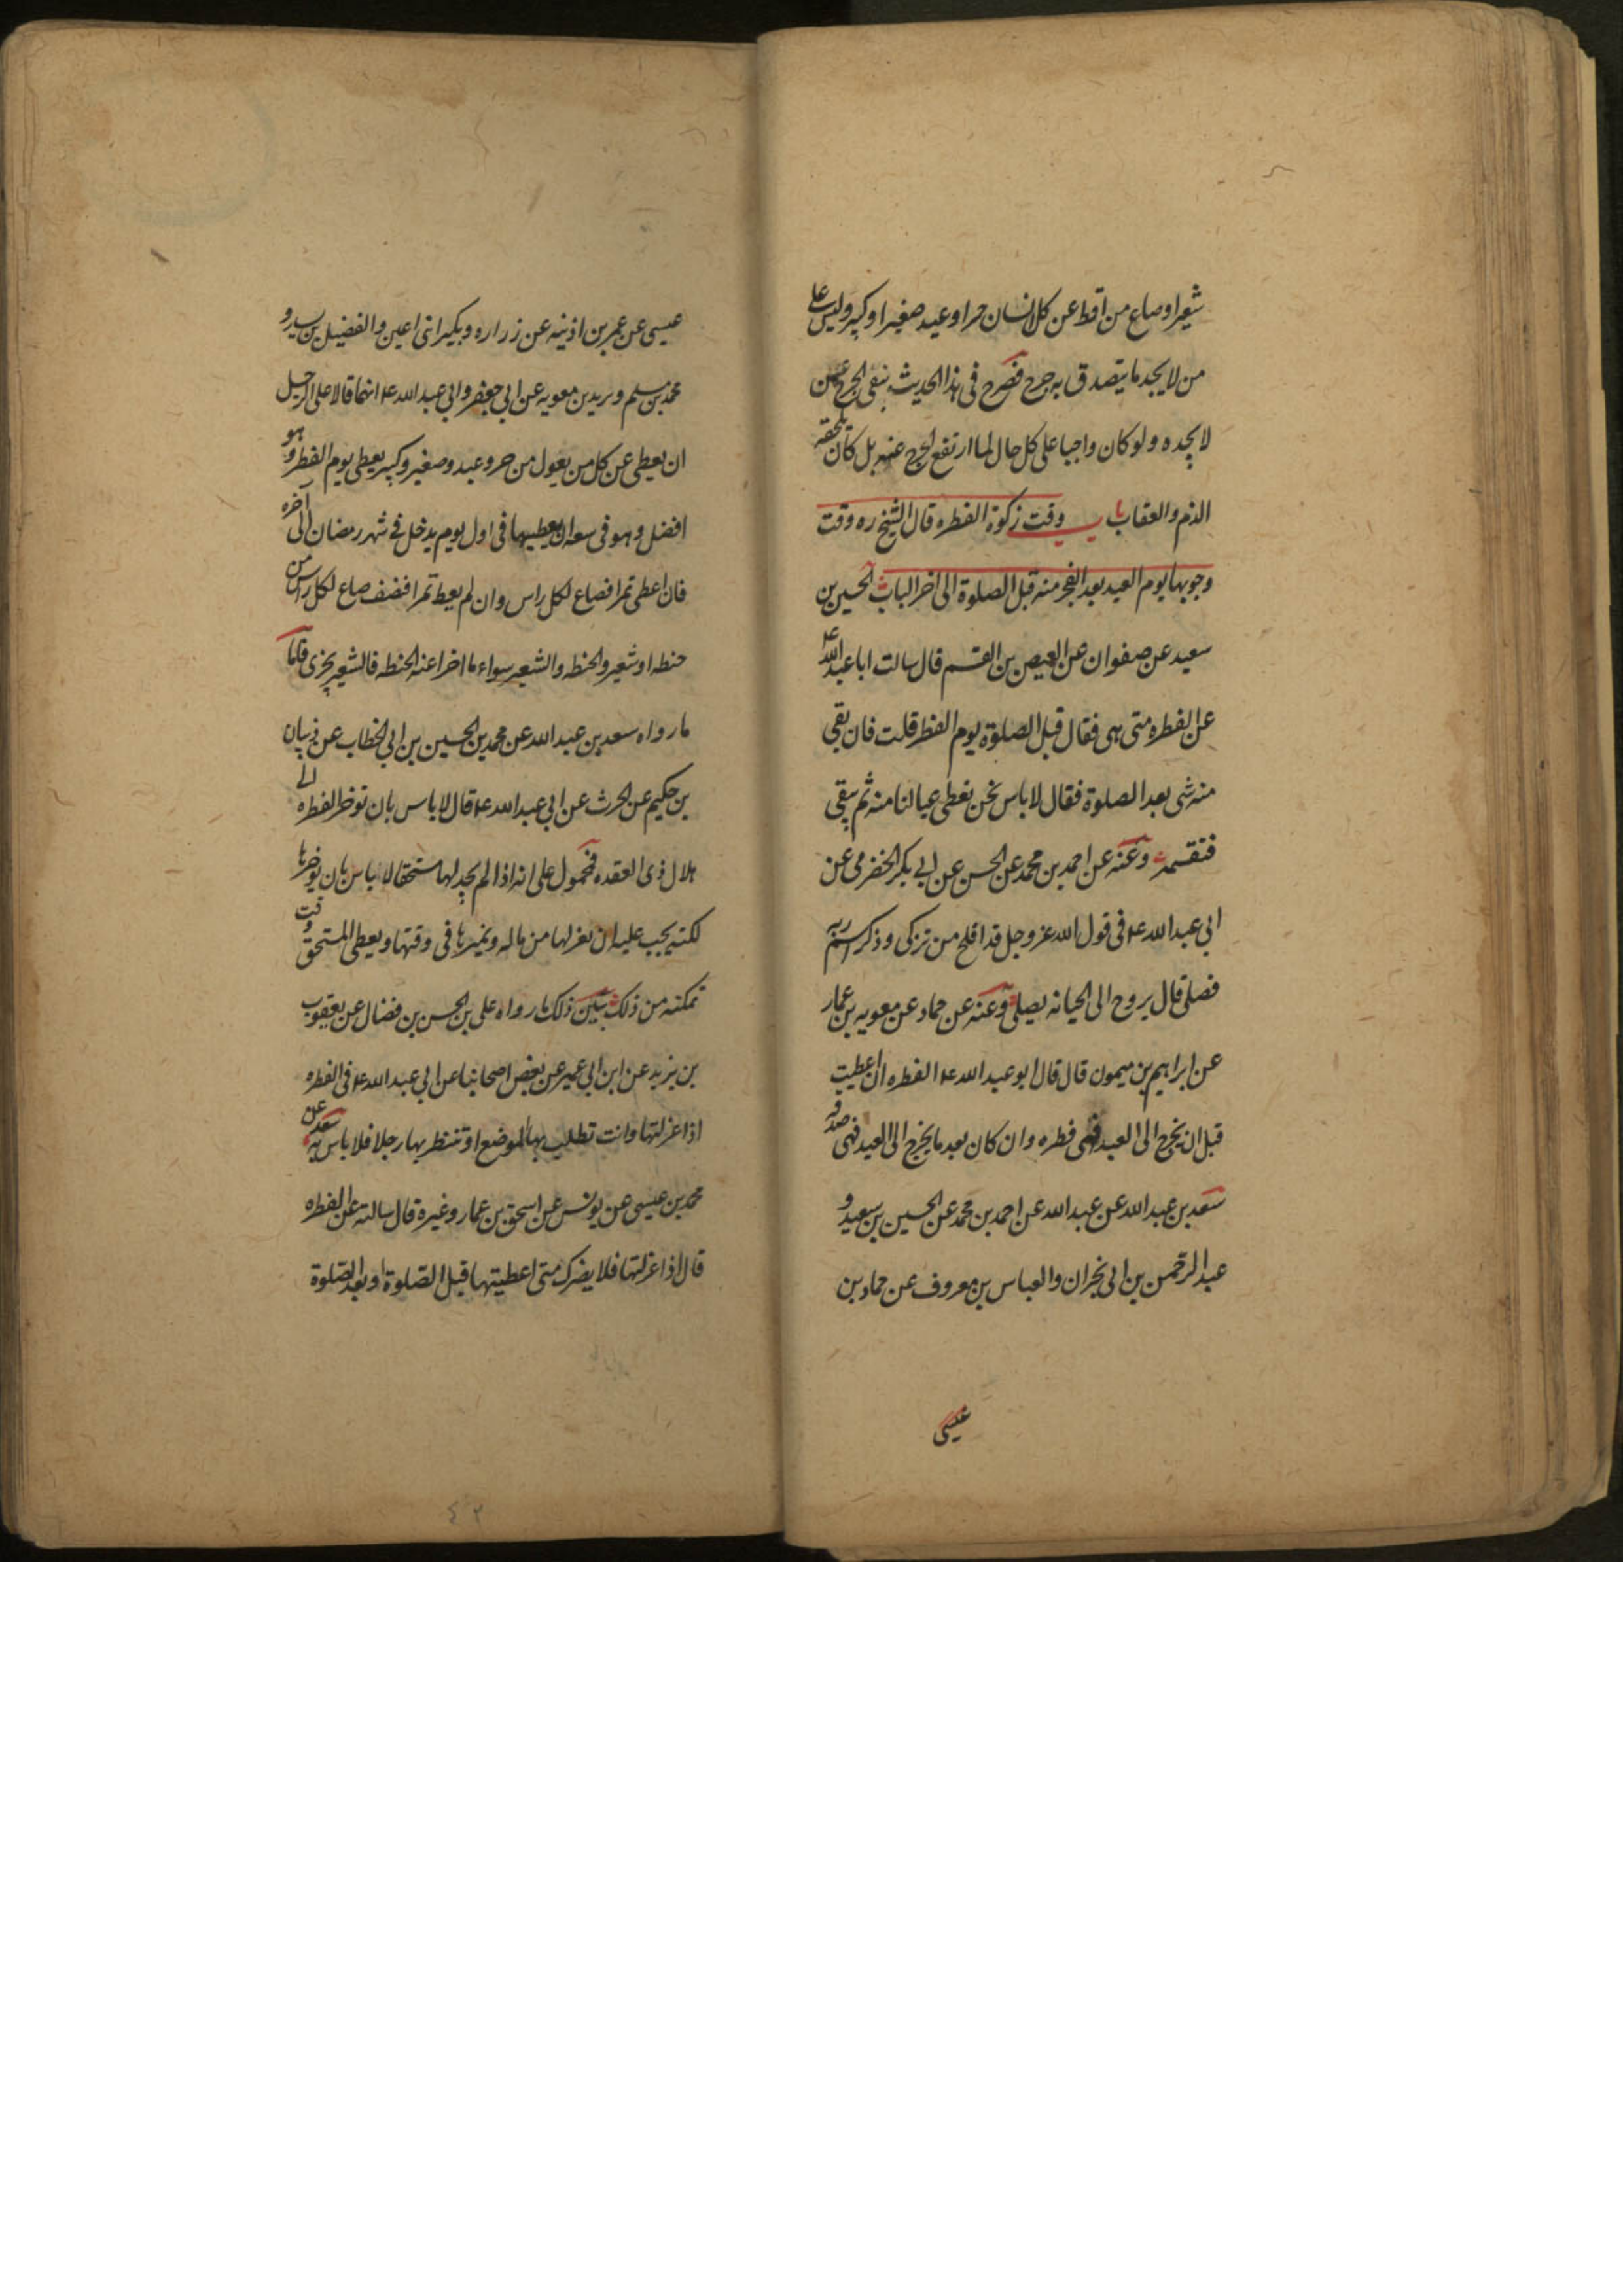 شعيرا وصاع من اقط عن كل انسان حر او عبد صغير او كبير وليس على
من لا يجد ما يتصدق به حرج فصرح فى هذا الحديث بنفى الحرج عمن
لا يجده ولو كان واجبا على كل حال لما ارتفع الحرج عنه بل كان يلحقه
الذم والعقاب باب وقت زكوة الفطره قال الشيخ ره وقت
وجوبها يوم العيد بعد الفجر منه قبل الصلوة الى اخر الباب الحسين بن
سعيد عن صفوان عن العيص بن القسم قال سالت ابا عبد الله ع
عن الفطره متى هى فقال قبل الصلوة يوم الفطر قلت فان بقى
منه شى بعد الصلوة فقال لا باس نحن نعطى عيالنا منه ثم يبقى
فنقسمه وعنه عن احمد بن محمد عن الحسن عن ابى بكر الحضرمى عن
ابى عبد الله ع فى قول الله عز وجل قد افلح من تزكى وذكر اسم ربه
فصلى قال يروح الى الجبانه يصلى وعنه عن حماد عن معويه بن عمار
عن ابراهيم بن ميمون قال قال ابو عبد الله ع الفطره ان اعطيت
قبل ان يخرج الى العيد فهى فطره وان كان بعد ما يخرج الى العيد فهى صدقه
سعد بن عبد الله عن عبد الله عن احمد بن محمد عن الحسين بن سعيد و
عبد الرحمن بن ابى نجران والعباس بن معروف عن حماد بن
عيسى
عيسى عن عمر بن اذينه عن زراره وبكير ابنى اعين والفضيل بن يسار و
محمد بن مسلم وبريد بن معويه عن ابى جعفر وابى عبد الله ع انهما قالا على الرجل
ان يعطى عن كل من يعول من حر وعبد وصغير وكبير يعطى يوم الفطر وهو
افضل وهو فى سعه ان يعطيها فى اول يوم يدخل فى شهر رمضان الى آخره
فان اعطى تمرا فصاع لكل راس وان لم يعط تمرا فنصف صاع لكل راس من
حنطه او شعير والحنطه والشعير سواء ما اجزا عنه الحنطه فالشعير يجزى فاما
ما رواه سعد بن عبد الله عن محمد بن الحسين بن ابى الخطاب عن ذبيان
بن حكيم عن الحرث عن ابى عبد الله ع قال لا باس بان توخر الفطره الى
هلال ذى القعده فمحمول على انه اذا لم يجد لها مستحقا لا باس بان يؤخرها
لكنه يجب عليه ان يعزلها من ماله ويميزها فى وقتها ويعطى المستحق وقت
تمكنه من ذلك يبين ذلك ما رواه على بن الحسن بن فضال عن يعقوب
بن يزيد عن ابن ابى عمير عن بعض اصحابنا عن ابى عبد الله ع فى الفطره
اذا عزلتها وانت تطلب بها الموضع او تنتظر بها رجلا فلا باس به سعد عن
محمد بن عيسى عن يونس عن اسحق بن عمار وغيره قال سالته عن الفطره
قال اذا عزلتها فلا يضرك متى اعطيتها قبل الصلوة او بعد الصلوة
٤٢